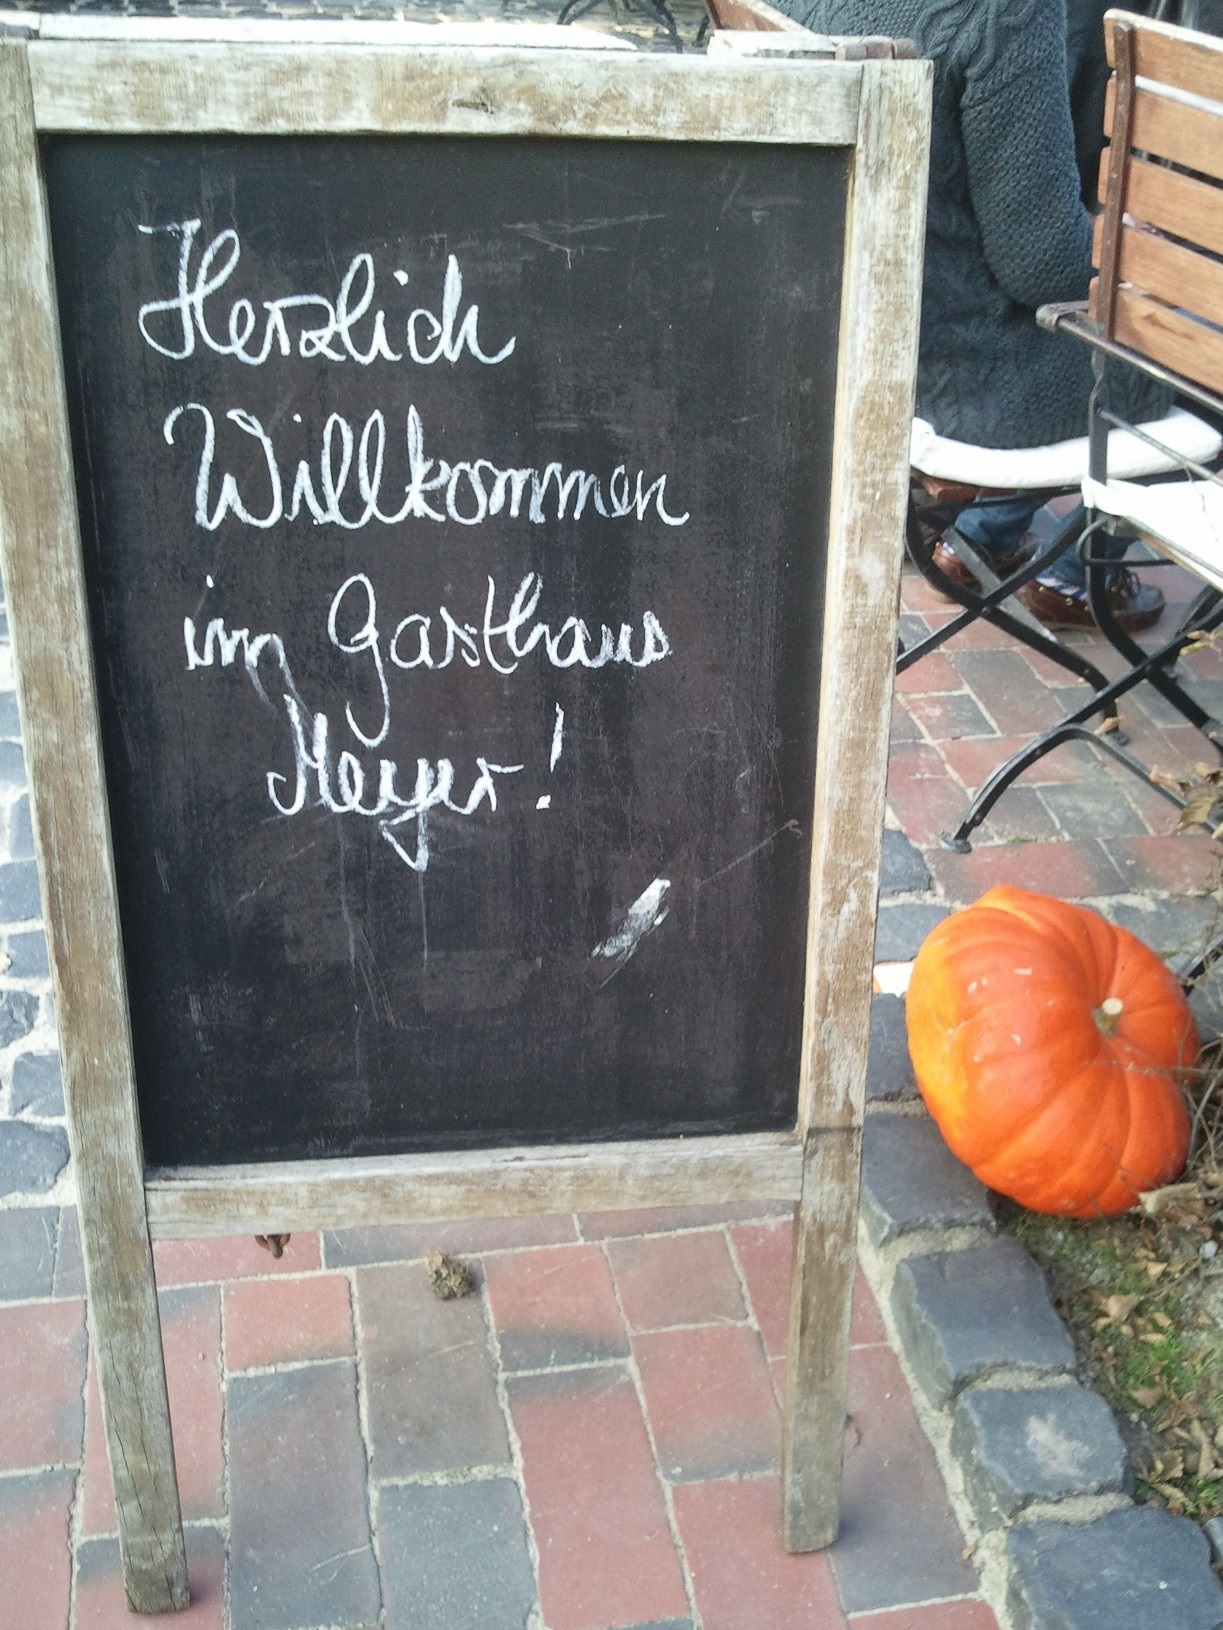 Herzlich
Willkommen
im Gasthaus
Meyer!